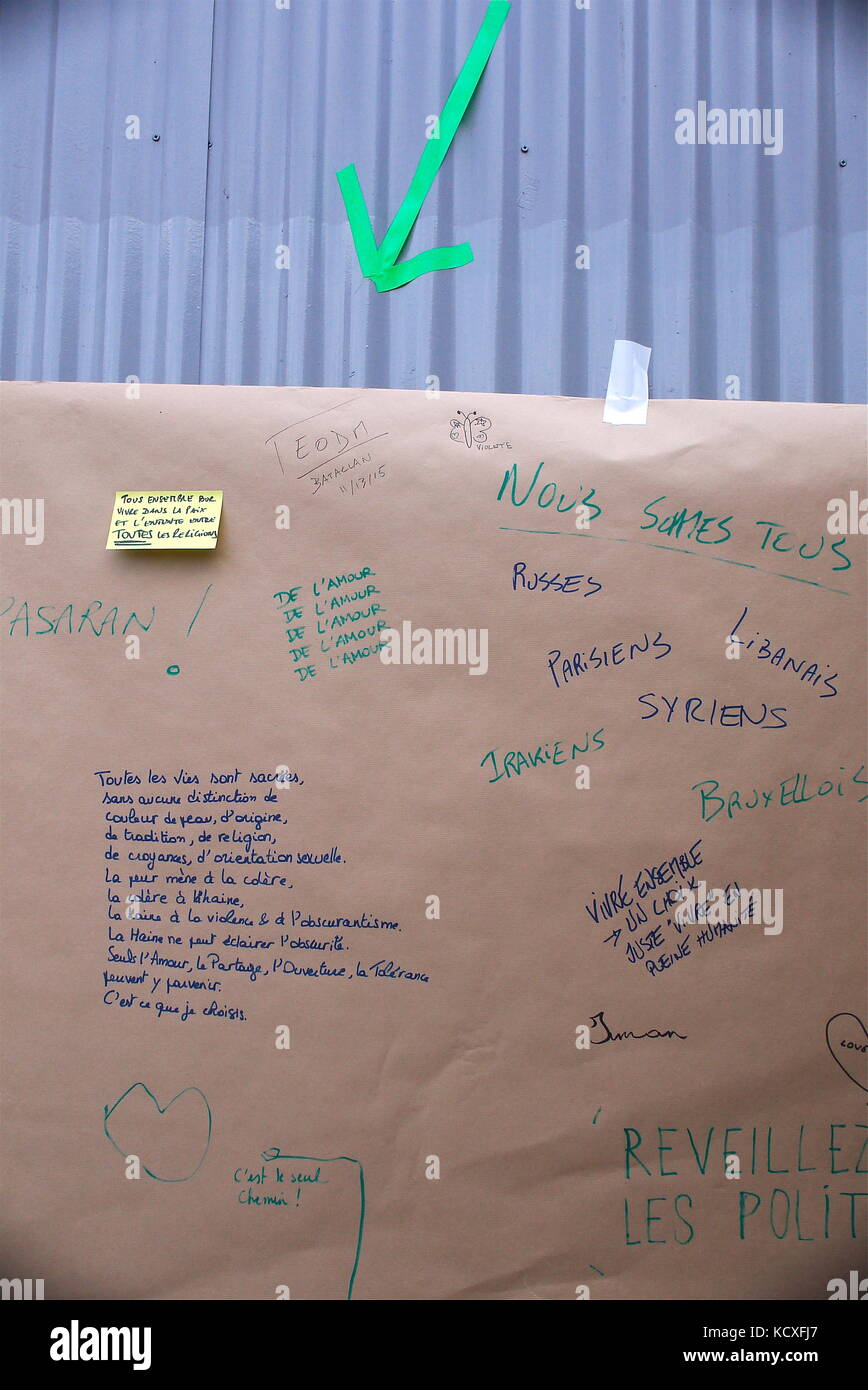 TEODM
BATACLAN
11/13/15
VIOLETTE
TOUS ENSEMBLE POUR
VIVRE DANS LA PAIX
ET L'ENTENTE ENTRE
TOUTES LES RELIGIONS
NOUS SOMMES TOUS
RUSSES
PARISIENS
LIBANAIS
SYRIENS
IRAKIENS
BRUXELLOIS
PASARAN !
DE L'AMOUR
DE L'AMOUR
DE L'AMOUR
DE L'AMOUR
DE L'AMOUR
Toutes les vies sont sacrées,
sans aucune distinction de
couleur de peau, d'origine,
de tradition, de religion,
de croyances, d'orientation sexuelle.
La peur mène à la colère,
la colère à la haine,
la haine à la violence & à l'obscurantisme.
La Haine ne peut éclairer l'obscurité.
Seuls l'Amour, le Partage, l'Ouverture, la Tolérance
peuvent y parvenir.
C'est ce que je choisis.
VIVRE ENSEMBLE
→ UN CHOIX
JUSTE "VIVRE" EN
PLEINE HUMANITÉ
Iman
LOVE
C'est le seul
chemin !
REVEILLEZ
LES POLIT
alamy
Image ID: KCXFJ7
www.alamy.com